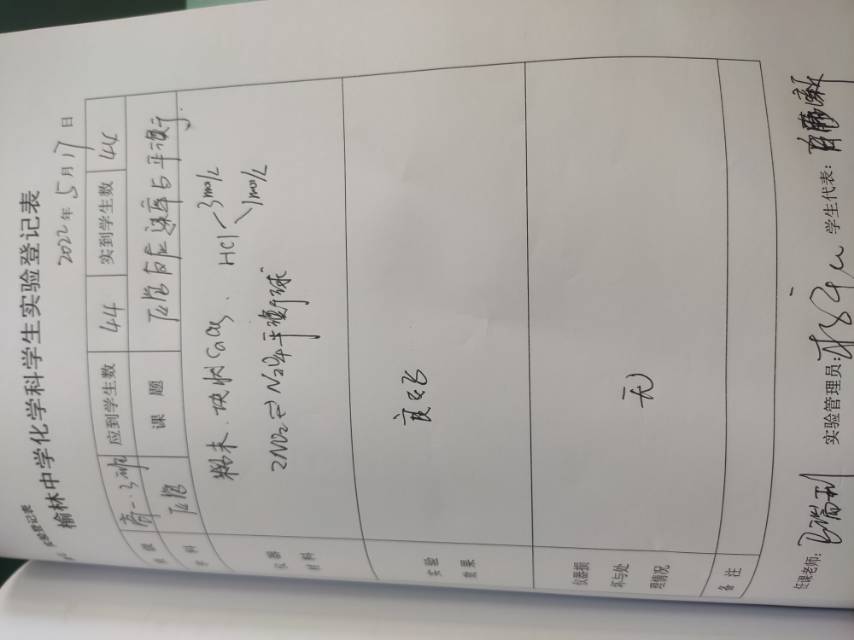 实验登记表
榆林中学化学科学生实验登记表
2022年5月17日
班级 高一·3班 应到学生数 44 实到学生数 44
学科 化学 课题 化学反应速率与平衡
仪器材料 粉末、块状CaCO3、HCl 3mol/L 1mol/L
2NO2⇌N2O4平衡球
实验效果 良好
仪器损坏与处理情况 无
备注
任课老师: 实验管理员: 学生代表: